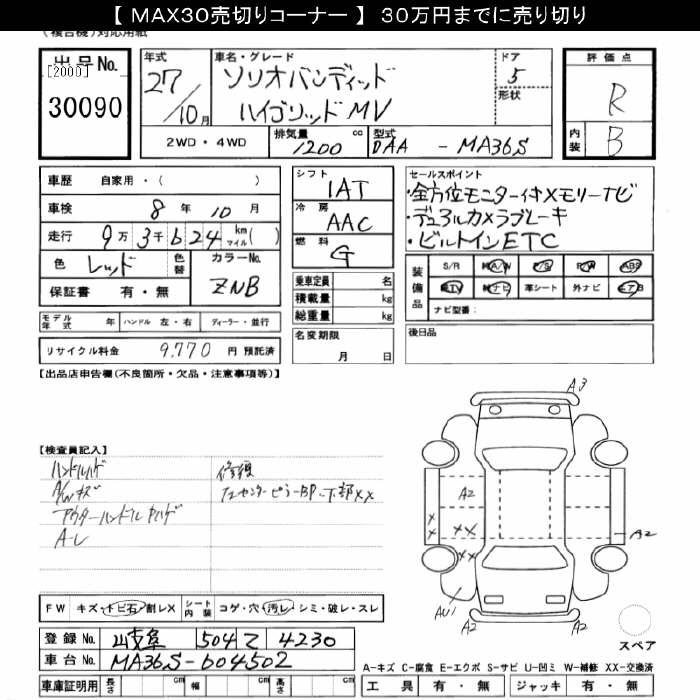 【 MAX30売切りコーナー 】 30万円までに売り切り
(複合機)対応用紙
出品No.
[2000]
30090
年式
27/10月
車名・グレード
ソリオバンディッド
ハイブリッドMV
ドア
5
形状
評価点
R
内装
B
2WD・4WD
排気量
1200 cc
型式
DAA - MA36S
車歴 自家用・( )
車検 8年 10月
走行 9万3千624 km マイル( )
色 レッド 色替 カラーNo. ZNB
保証書 有・無
シフト
IAT
冷房
AAC
燃料
G
乗車定員 名
積載量 kg
総重量 kg
セールスポイント
・全方位モニター付メモリーナビ
・デュアルカメラブレーキ
・ビルトインETC
装備品
S/R A/W P/S P/W ABS
TV ナビ 革シート 外ナビ エアB
ナビ型番:
モデル年式 年 ハンドル 左・右 ディーラー・並行
リサイクル料金 9,770 円 預託済
名変期限
月 日
後日品
【出品店申告欄(不良箇所・欠品・注意事項等)】
【検査員記入】
ハンドルハゲ
A/Wキズ
アウターハンドルカハゲ
A-L
修復
センターピラーBP、下部XX
A3
A2
XX
X
X
XX
A2
AU1
A2
A2
スペア
FW キズ・トビ石・割レX シート内装 コゲ・穴・汚レ・シミ・破レ・スレ
登録No. 岐阜 504 て 4230
車台No. MA36S-604502
車庫証明用 長さ cm 幅 cm 高さ cm
A-キズ C-腐食 E-エクボ S-サビ U-凹ミ W-補修 XX-交換済
工具 有・無 ジャッキ 有・無